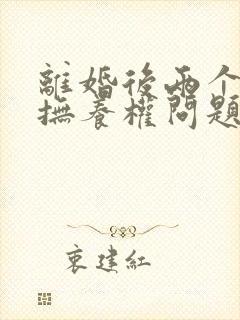 離婚後兩个
撫養權問題
衷建紅